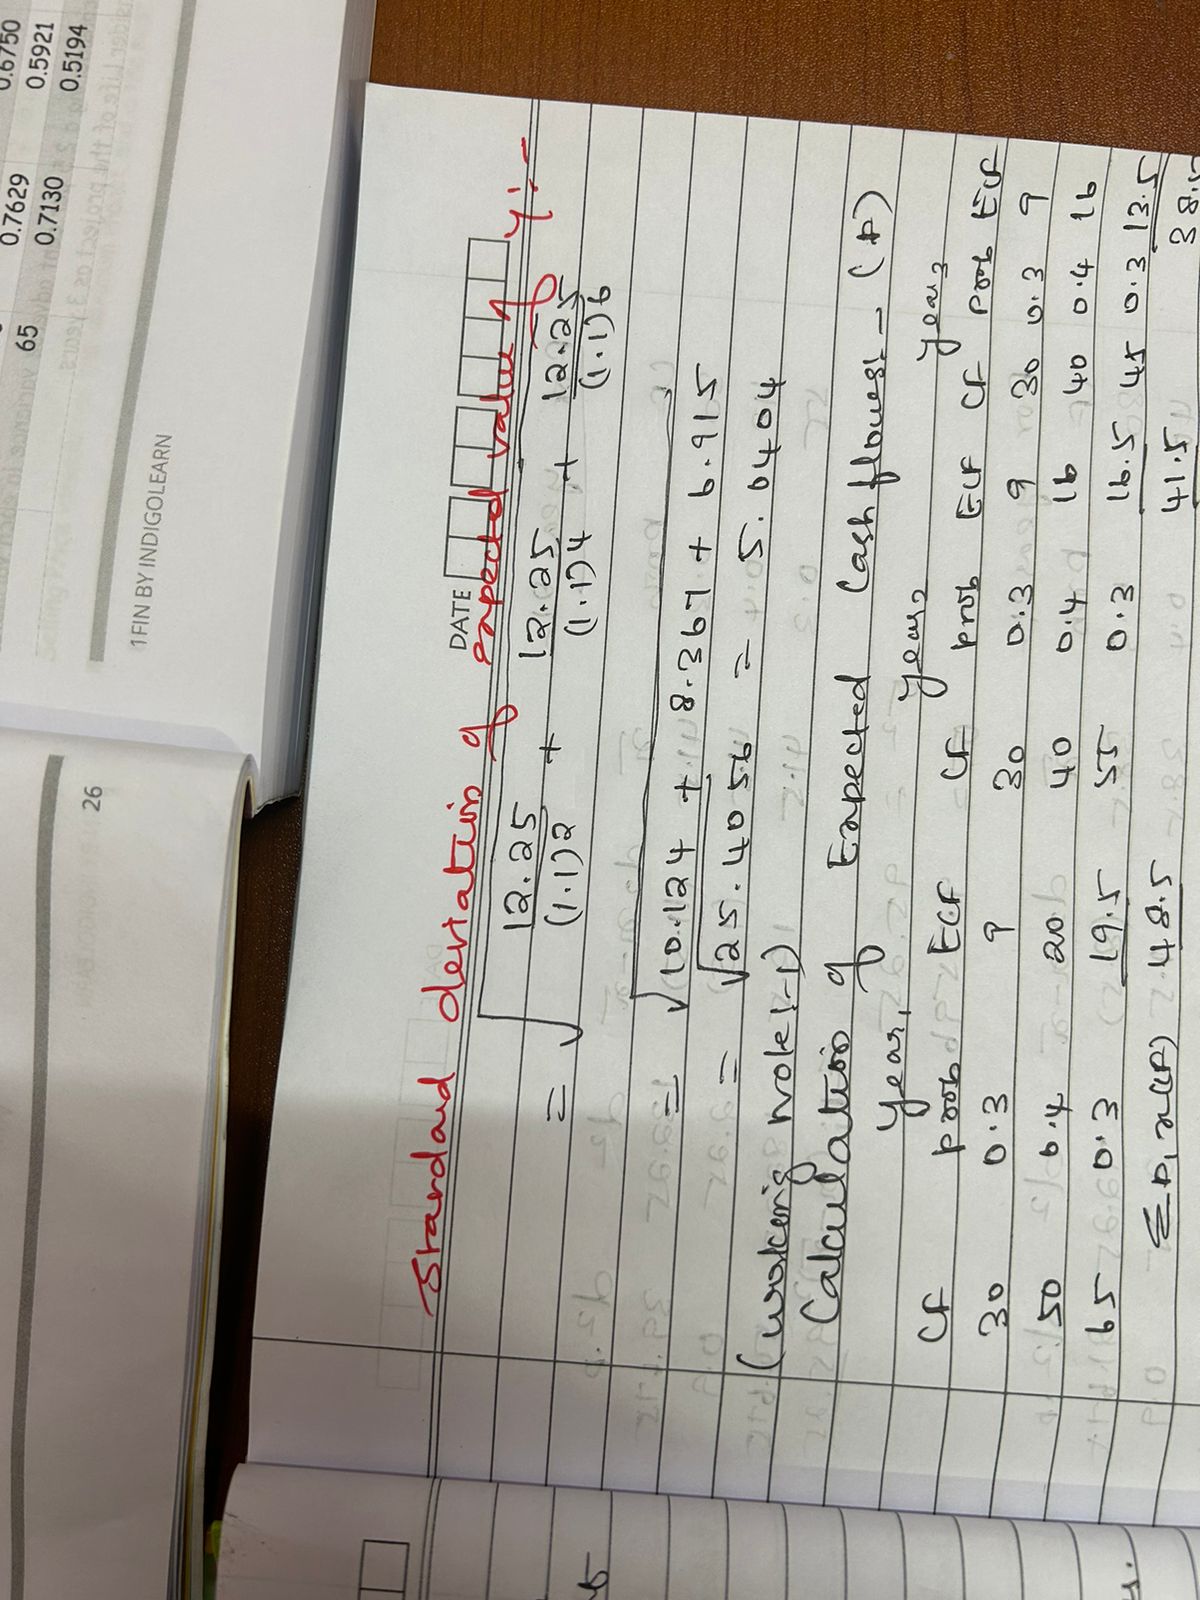 0.6750
0.7629 0.5921
65 0.7130 0.5194
1FIN BY INDIGOLEARN
26
DATE
Standard deviation of expected value of Y:-
= √ 12.25/(1.1)2 + 12.25/(1.1)4 + 12.25/(1.1)6
= √10.124 + 8.367 + 6.915
= √25.4056 = 5.0404
(working note:-1)
Calculation of Expected Cash flows:- (A)
Year1 year2 year3
CF prob ECF CF prob ECF CF prob ECF
30 0.3 9 30 0.3 9 30 0.3 9
50 0.4 20 40 0.4 16 40 0.4 16
65 0.3 19.5 55 0.3 16.5 45 0.3 13.5
48.5 41.5 38.5